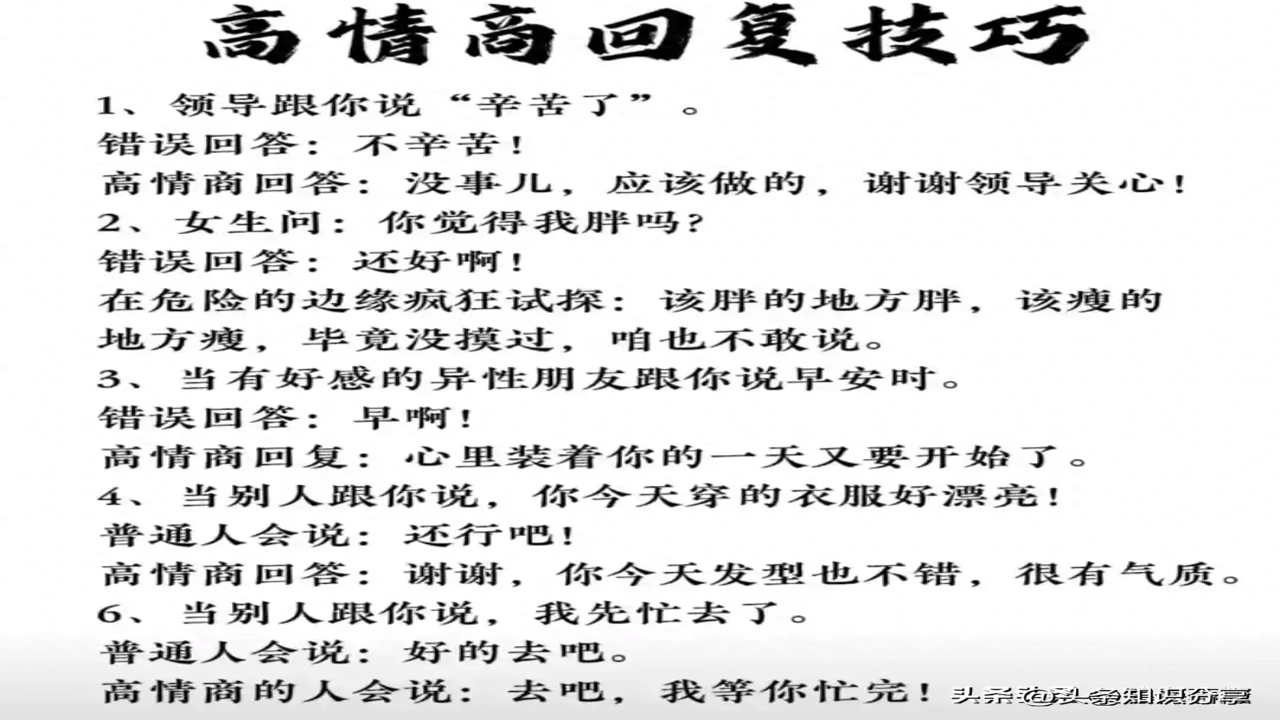 高情商回复技巧
1、领导跟你说“辛苦了”。
错误回答：不辛苦！
高情商回答：没事儿，应该做的，谢谢领导关心！
2、女生问：你觉得我胖吗？
错误回答：还好啊！
在危险的边缘疯狂试探：该胖的地方胖，该瘦的
地方瘦，毕竟没摸过，咱也不敢说。
3、当有好感的异性朋友跟你说早安时。
错误回答：早啊！
高情商回复：心里装着你的一天又要开始了。
4、当别人跟你说，你今天穿的衣服好漂亮！
普通人会说：还行吧！
高情商回答：谢谢，你今天发型也不错，很有气质。
6、当别人跟你说，我先忙去了。
普通人会说：好的去吧。
高情商的人会说：去吧，我等你忙完！